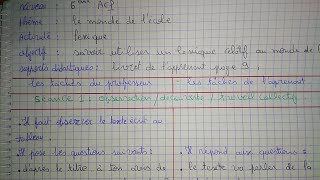 Niveau : 6ème AEP
Thème : le monde de l'école
Activité : lexique
Objectif : savoir utiliser un lexique relatif au monde de l'
supports didactiques : livret de l'apprenant page 9.
Les tâches du professeur Les tâches de l'apprenant
Séance 1 : observation / découverte / travail collectif
• Il fait observer le texte écrit au
tableau.
• Il pose les questions suivants : • Il répond aux questions
d'après le titre à ton avis de le texte va parler de la